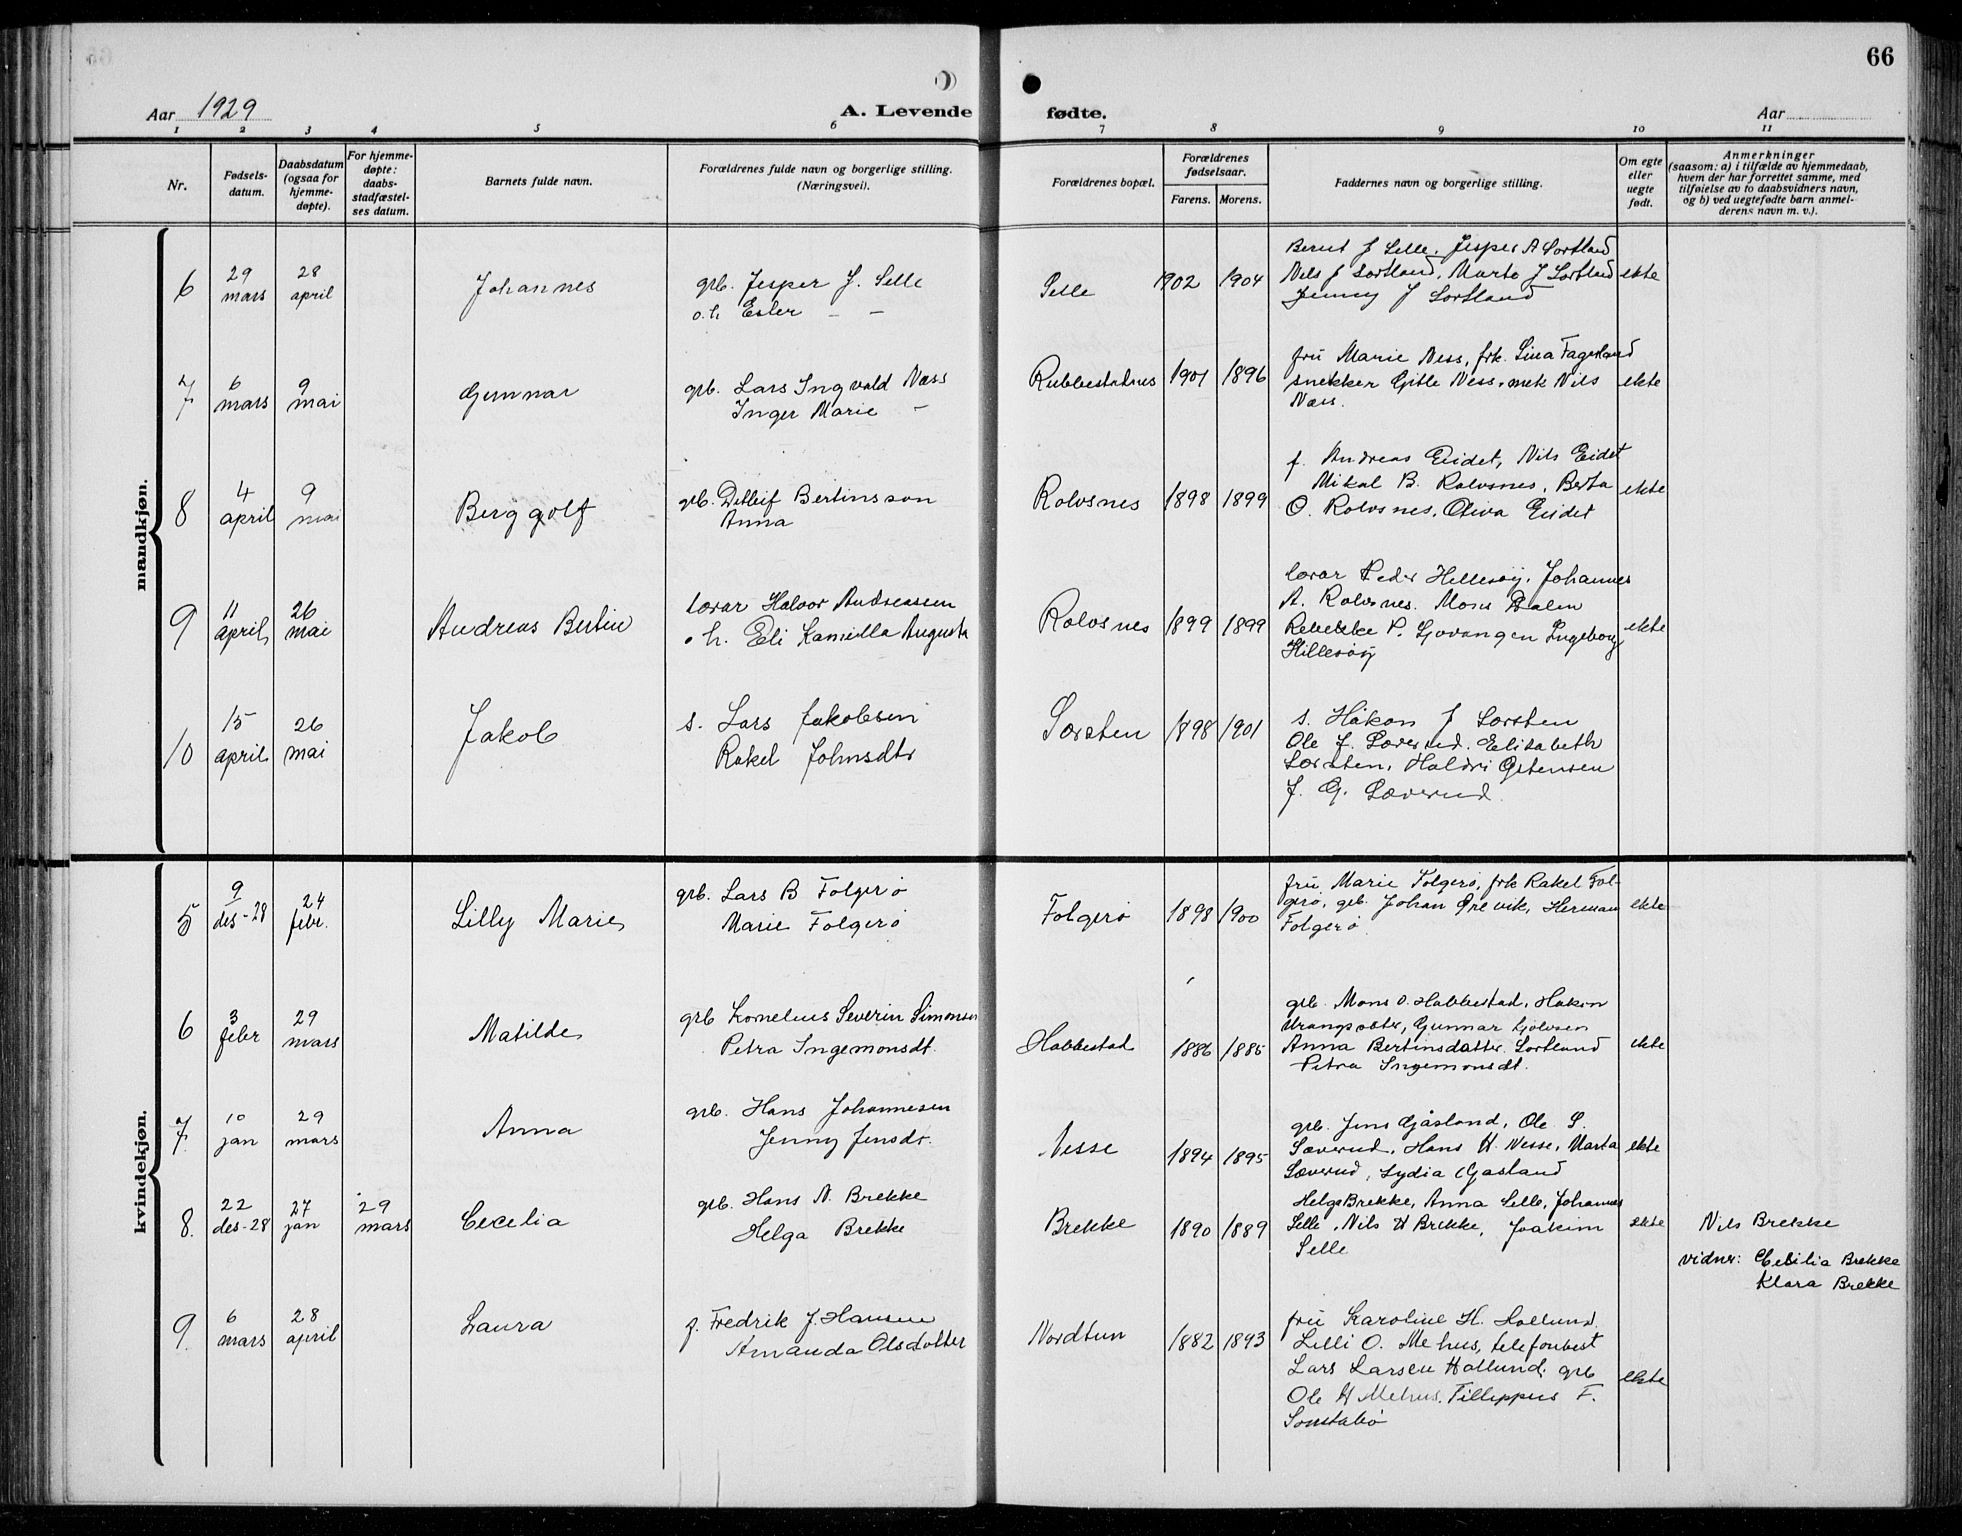 66
Aar 1929
A. Levende fødte.
Aar
1 2 3 4 5 6 7 8 9 10 11
Nr.
Fødsels-
datum.
Daabsdatum
(ogsaa for
hjemme-
døpte).
For hjemme-
døpte:
daabs-
stadfæstel-
ses datum.
Barnets fulde navn.
Forældrenes fulde navn og borgerlige stilling.
(Næringsvei).
Forældrenes bopæl.
Forældrenes
fødselsaar.
Farens. Morens.
Faddernes navn og borgerlige stilling.
Om egte
eller
uegte
født.
Anmerkninger
(saasom: a) i tilfælde av hjemmedaab,
hvem der har forrettet samme, med
tilføielse av to daabsvidners navn,
og b) ved uegtefødte barn anmel-
derens navn m. v.).
mandkjøn.
6
29
mars
28
april
Johannes
grb. Jesper J. Selle
o.h. Ester — —
Selle
1902
1904
Bernt J Selle, Jesper A Sortland
Nils J Sortland, Marta J Sortland
Jenny J Sortland
ekte
7
6
mars
9
mai
Gunnar
grb. Lars Ingvald Næss
Inger Marie —
Rubbestadnes
1901
1896
fru Marie Ness, frk. Lina Fagerland
snekker Gitle Ness, mek Nils
Næss.
ekte
8
4
april
9
mai
Berggolf
grb. Detleif Bertinsson
Anna
Rolvsnes
1898
1899
f. Andreas Eidet, Nils Eidet
Mikal B. Rolvsnes, Berta
O. Rolvsnes, Oliva Eidet
ekte
9
11
april
26
mai
Andreas Bertin
lærar Halvor Andreassen
o.h. Eli Kamilla Augusta
Rolvsnes
1899
1899
lærar Peder Hillesøy, Johannes
A. Rolvsnes. Mons Dalen
Rebekke P. Ingeborg
Hillesøy
ekte
10
15
april
26
mai
Jakob
s. Lars Jakobsen
Rakel Johnsdtr
Særsten
1898
1901
s. Håkon J Særsten
Ole J. Sæverud. Elisabeth
Særsten,
J. G. Sæverud.
kvindekjøn.
5
9
des-28
24
febr.
Lilly Marie
grb. Lars B Folgerø
Marie Folgerø
Folgerø
1898
1900
fru Marie Folgerø, frk Rakel Fol-
gerø, grb. Johan Herman
Folgerø
ekte
6
3
febr
29
mars
Matilde
grb Kornelius Severin Simonsen
Petra Ingemonsdt.
Habbestad
1886
1885
grb. Mons O. Habbestad, Hakon
Gunnar
Anna Bertinsdatter Sortland
Petra Ingemonsdt.
ekte
7.
10
jan
29
mars
Anna
grb. Hans Johannesen
Jenny Jensdt.
Nesse
1894
1895
grb. Jens Gåsland, Ole S.
Sæverud, Hans H. Nesse, Marta
Sæverud, Lydia Gåsland
ekte
8.
22
des-28
27
jan
29
mars
Cecelia
grb. Hans N. Brekke
Helga Brekke
Brekke
1890
1889
Helge Brekke, Anna Selle, Johannes
Selle, Nils H Brekke, Joakim
Selle
ekte
Nils Brekke
vidner: Cecilia Brekke
Klara Brekke
9.
6
mars
28
april
Laura
f. Fredrik J. Hansen
Amanda Olsdotter
Nordtun
1882
1893
fru Karoline H. Hollund.
Lilli O. Mehus, telefonbest
Lars Larsen Hollund, grb
Ole H Mehus, Fillippus F.
Sønstabø
ekte